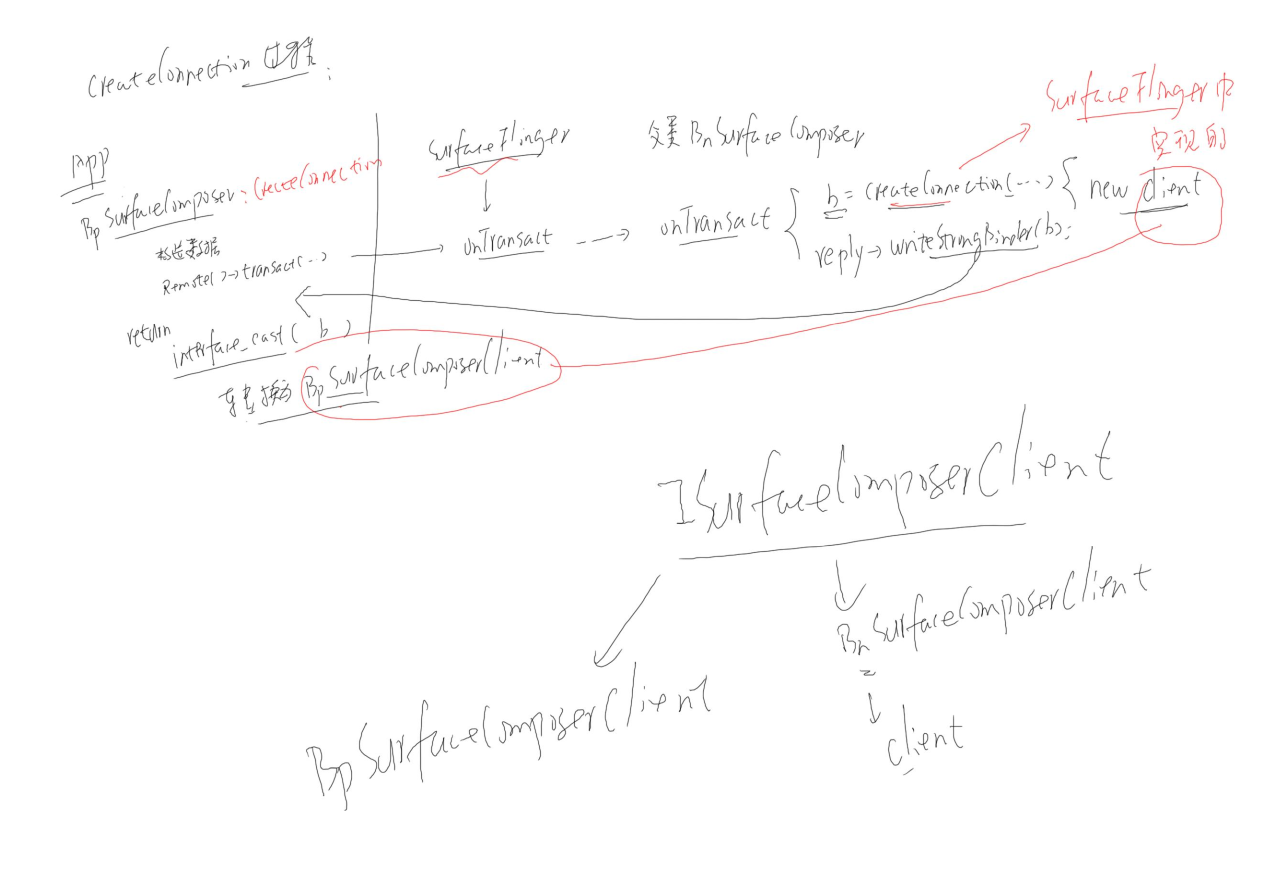 CreateConnection 过程:
APP
BpSurfaceComposer: CreateConnection
构造数据
Remote()->transact(...)
return
interface_cast( b )
转换为 BpSurfaceComposerClient
SurfaceFlinger
onTransact
父类 BnSurfaceComposer
onTransact
b = CreateConnection(...) { new client
reply->writeStrongBinder(b);
SurfaceFlinger中
实现的
ISurfaceComposerClient
BnSurfaceComposerClient
client
BpSurfaceComposerClient